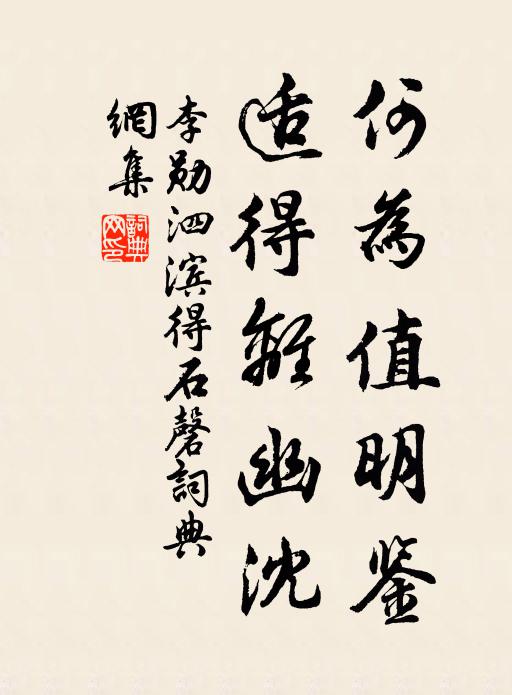 何為值明鉴
适得離幽沈
李勋泗滨得石磬詞典
網集
詞典網印